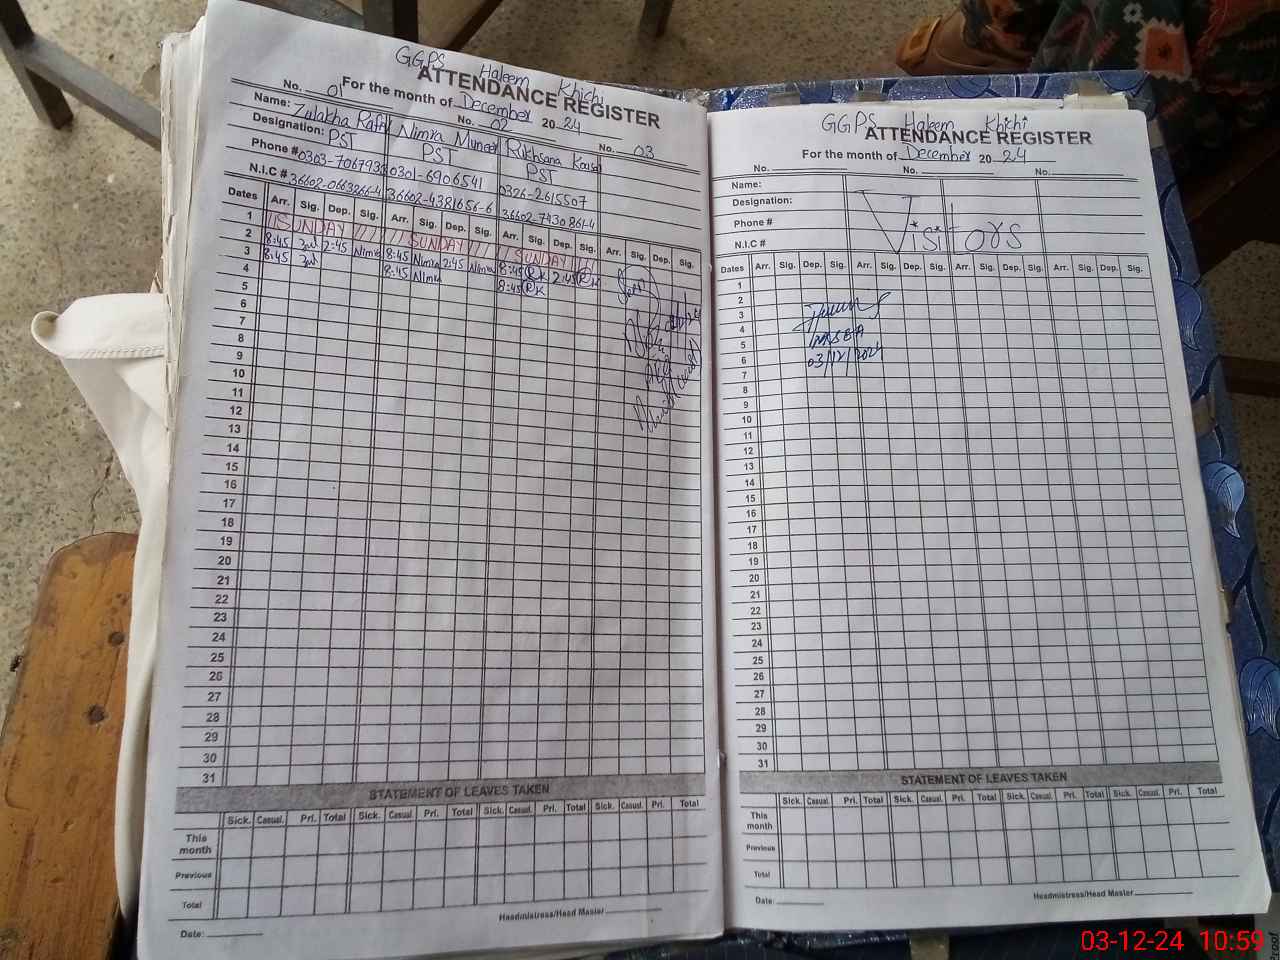 GGPS Haleem Khichi
ATTENDANCE REGISTER
For the month of December 20 24
No. 01 No. 02 No. 03
Name: Zulakha Rafiq Nimra Muneer Rukhsana Kousar
Designation: PST PST PST
Phone # 0301-6906541 0326-2615507
N.I.C # 36602-4381656-6
Dates Arr. Sig. Dep. Sig. Arr. Sig. Dep. Sig. Arr. Sig. Dep. Sig. Arr. Sig. Dep. Sig.
1 SUNDAY SUNDAY SUNDAY
2 8:45 Zul 2:45 Nimra 8:45 Nimra 2:45 Nimra 8:45 RK 2:45 RK
3 8:45 Zul 8:45 Nimra 8:45 RK
4
5
6
7
8
9
10
11
12
13
14
15
16
17
18
19
20
21
22
23
24
25
26
27
28
29
30
31
STATEMENT OF LEAVES TAKEN
Sick. Casual. Pri. Total Sick. Casual. Pri. Total Sick. Casual. Pri. Total Sick. Casual. Pri. Total
This month
Previous
Total
Headmistress/Head Master
Date:
GGPS Haleem Khichi
ATTENDANCE REGISTER
For the month of December 20 24
No. No. No.
Name:
Designation:
Phone #
N.I.C #
Visitors
Dates Arr. Sig. Dep. Sig. Arr. Sig. Dep. Sig. Arr. Sig. Dep. Sig. Arr. Sig. Dep. Sig.
1
2
3
4
5
6
7
8
9
10
11
12
13
14
15
16
17
18
19
20
21
22
23
24
25
26
27
28
29
30
31
03/12/2024
STATEMENT OF LEAVES TAKEN
Sick. Casual. Pri. Total Sick. Casual. Pri. Total Sick. Casual. Pri. Total Sick. Casual. Pri. Total
This month
Previous
Total
Headmistress/Head Master
Date:
03-12-24 10:59